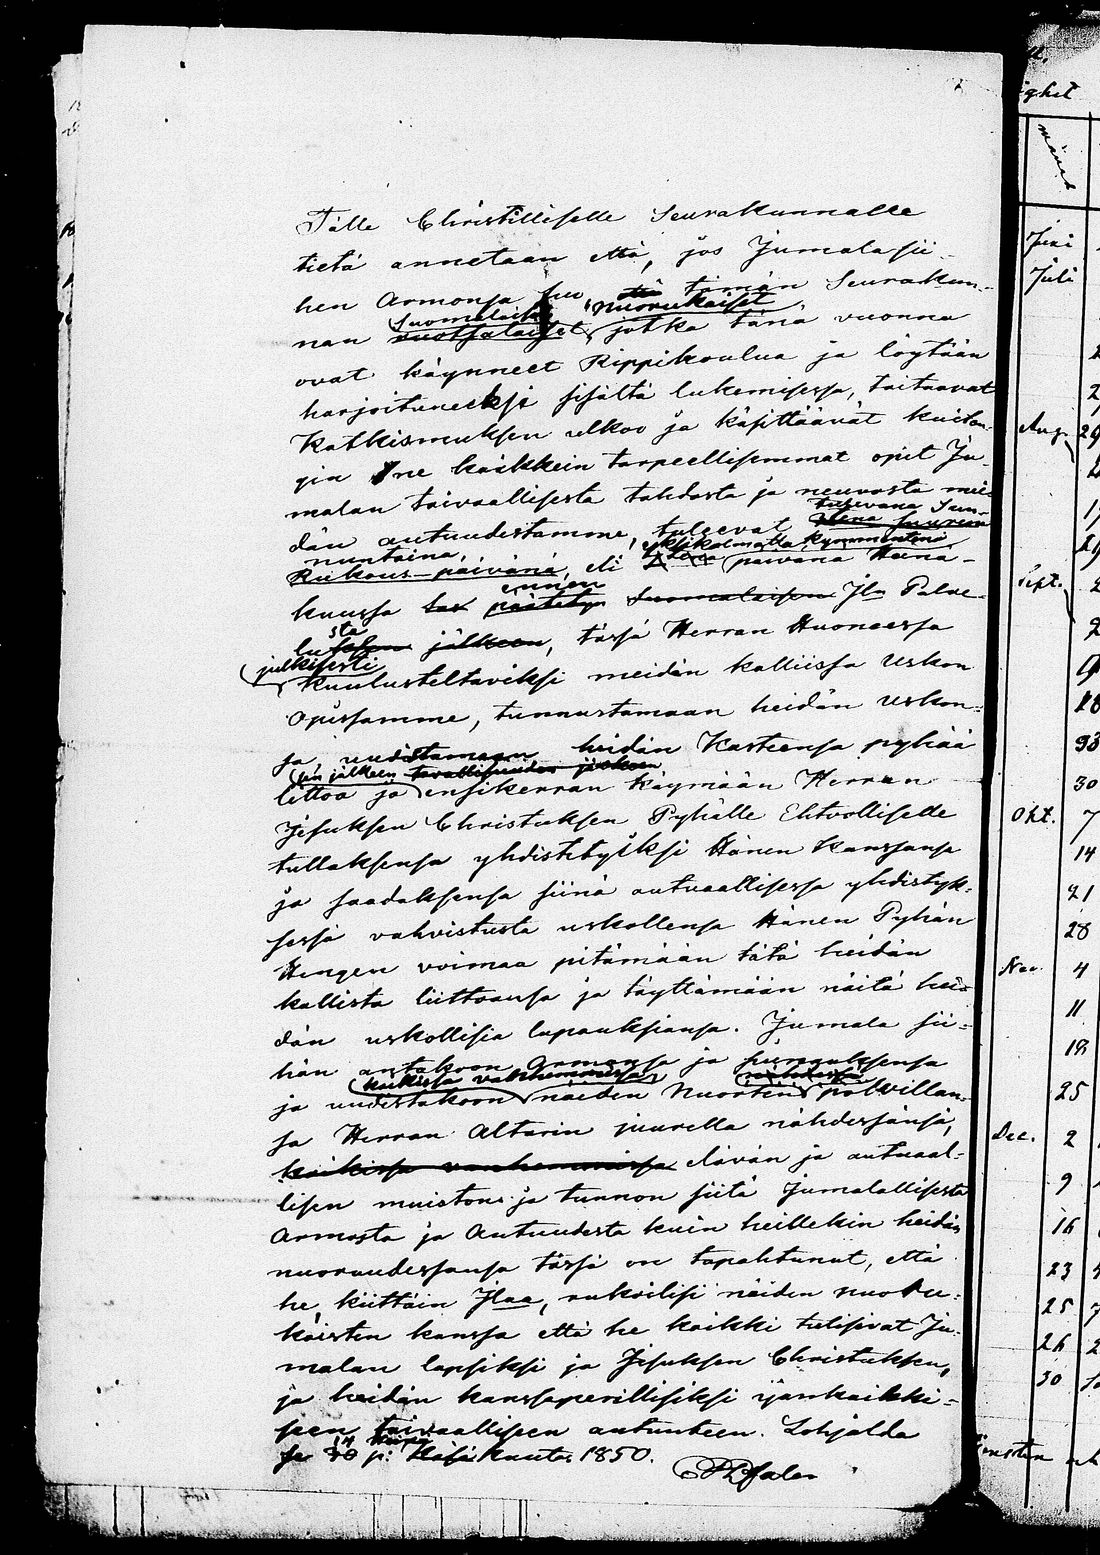 Tälle Christilliselle Seurakunnalle
tietä annetaan että, jos Jumala sii-
hen Armonsa suo että tämän Seurakun-
suomalaiset nuorukaiset
nan ruotsalaiset jotka tänä vuonna
ovat käynneet Rippikoulua ja löytään
harjoituneeksi sisältä lukemisessa, taitaavat
Katkismuksen ulkoo ja käsittäävät kuiten-
gin ne kaikkein tarpeellisemmat opit Ju-
malan taivaallisesta tahdosta ja neuvosta mei-
tulevana Sun-
dän autuudestamme, tuleevat
nuntaina yksikolmatta kymmentenä
Rukous-päivänä, eli päivänä Heinä-
ennen
kuussa päätetyn Suomalaisen Jln Palve-
sta
luksen jälkeen, tässä Herran Huoneessa
julkisesti
kuulusteltaviksi meidän kalliissa Uskon
opissamme, tunnustamaan heidän uskon-
sa, uudistamaan heidän Kasteensa pyhää
sen jälkeen tavallisuuden jälkeen
littoa ja ensikerran käymään Herran
Jesuksen Christuksen Pyhälle Ehtoolliselle
tullaksensa yhdistetyiksi Hänen kanssansa
ja saadaksensa siinä autuaallisessa yhdistyk-
sessä vahvistusta uskollensa Hänen Pyhän
Hengen voimaa pitämään tätä heidän
kallista liittoansa ja täyttämään näitä hei-
dän uskollisia lupauksiansa. Jumala sii-
hän antakoon Armonsa ja siunauksensa
kaikissa vanhemmissa nähdessä
ja uudistakoon näiden Nuorten polvillan-
sa Herran Altarin juurella nähdessänsä,
kaikissa vanhemmissa elävän ja autuaal-
lisen muiston ja tunnon siitä Jumalallisesta
Armosta ja Autuudesta kuin heillekin heidän
nuoruudessansa tässä on tapahtunut, että
he, kiittäin Jlaa, rukoilisi näiden nuoru-
kaisten kanssa että he kaikki tulisivat Ju-
malan lapsiksi ja Jesuksen Christuksen,
ja heidän kanssaperillisiksi ijankaikki-
seen taivaalliseen autuuteen. Lohjalda
14 Heinä
se 30 p: Kesäkuuta 1850.